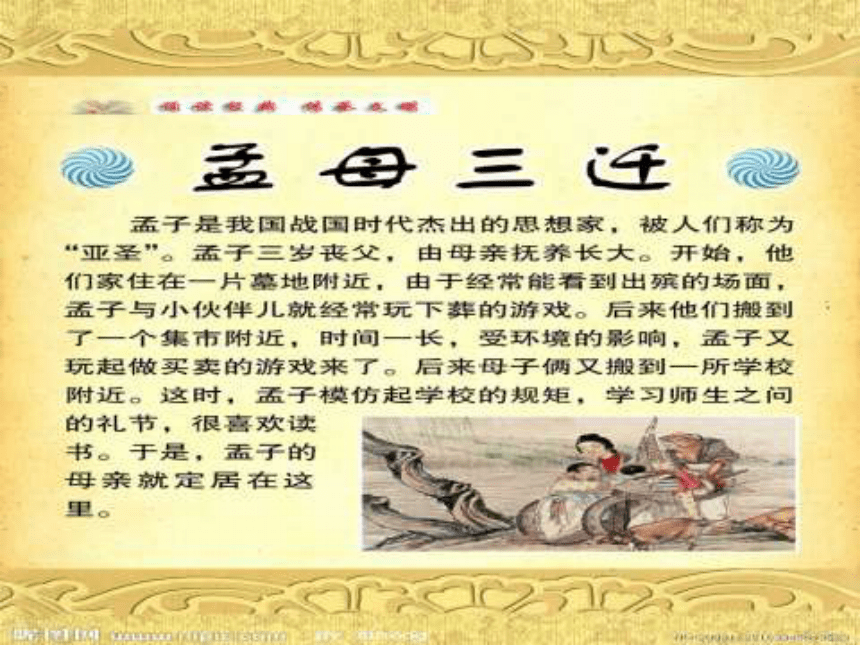 诵读经典 传承文明
孟母三迁
孟子是我国战国时代杰出的思想家，被人们称为
“亚圣”。孟子三岁丧父，由母亲抚养长大。开始，他
们家住在一片墓地附近，由于经常能看到出殡的场面，
孟子与小伙伴儿就经常玩下葬的游戏。后来他们搬到
了一个集市附近，时间一长，受环境的影响，孟子又
玩起做买卖的游戏来了。后来母子俩又搬到一所学校
附近。这时，孟子模仿起学校的规矩，学习师生之间
的礼节，很喜欢读
书。于是，孟子的
母亲就定居在这
里。
昵图网 www.nipic.com